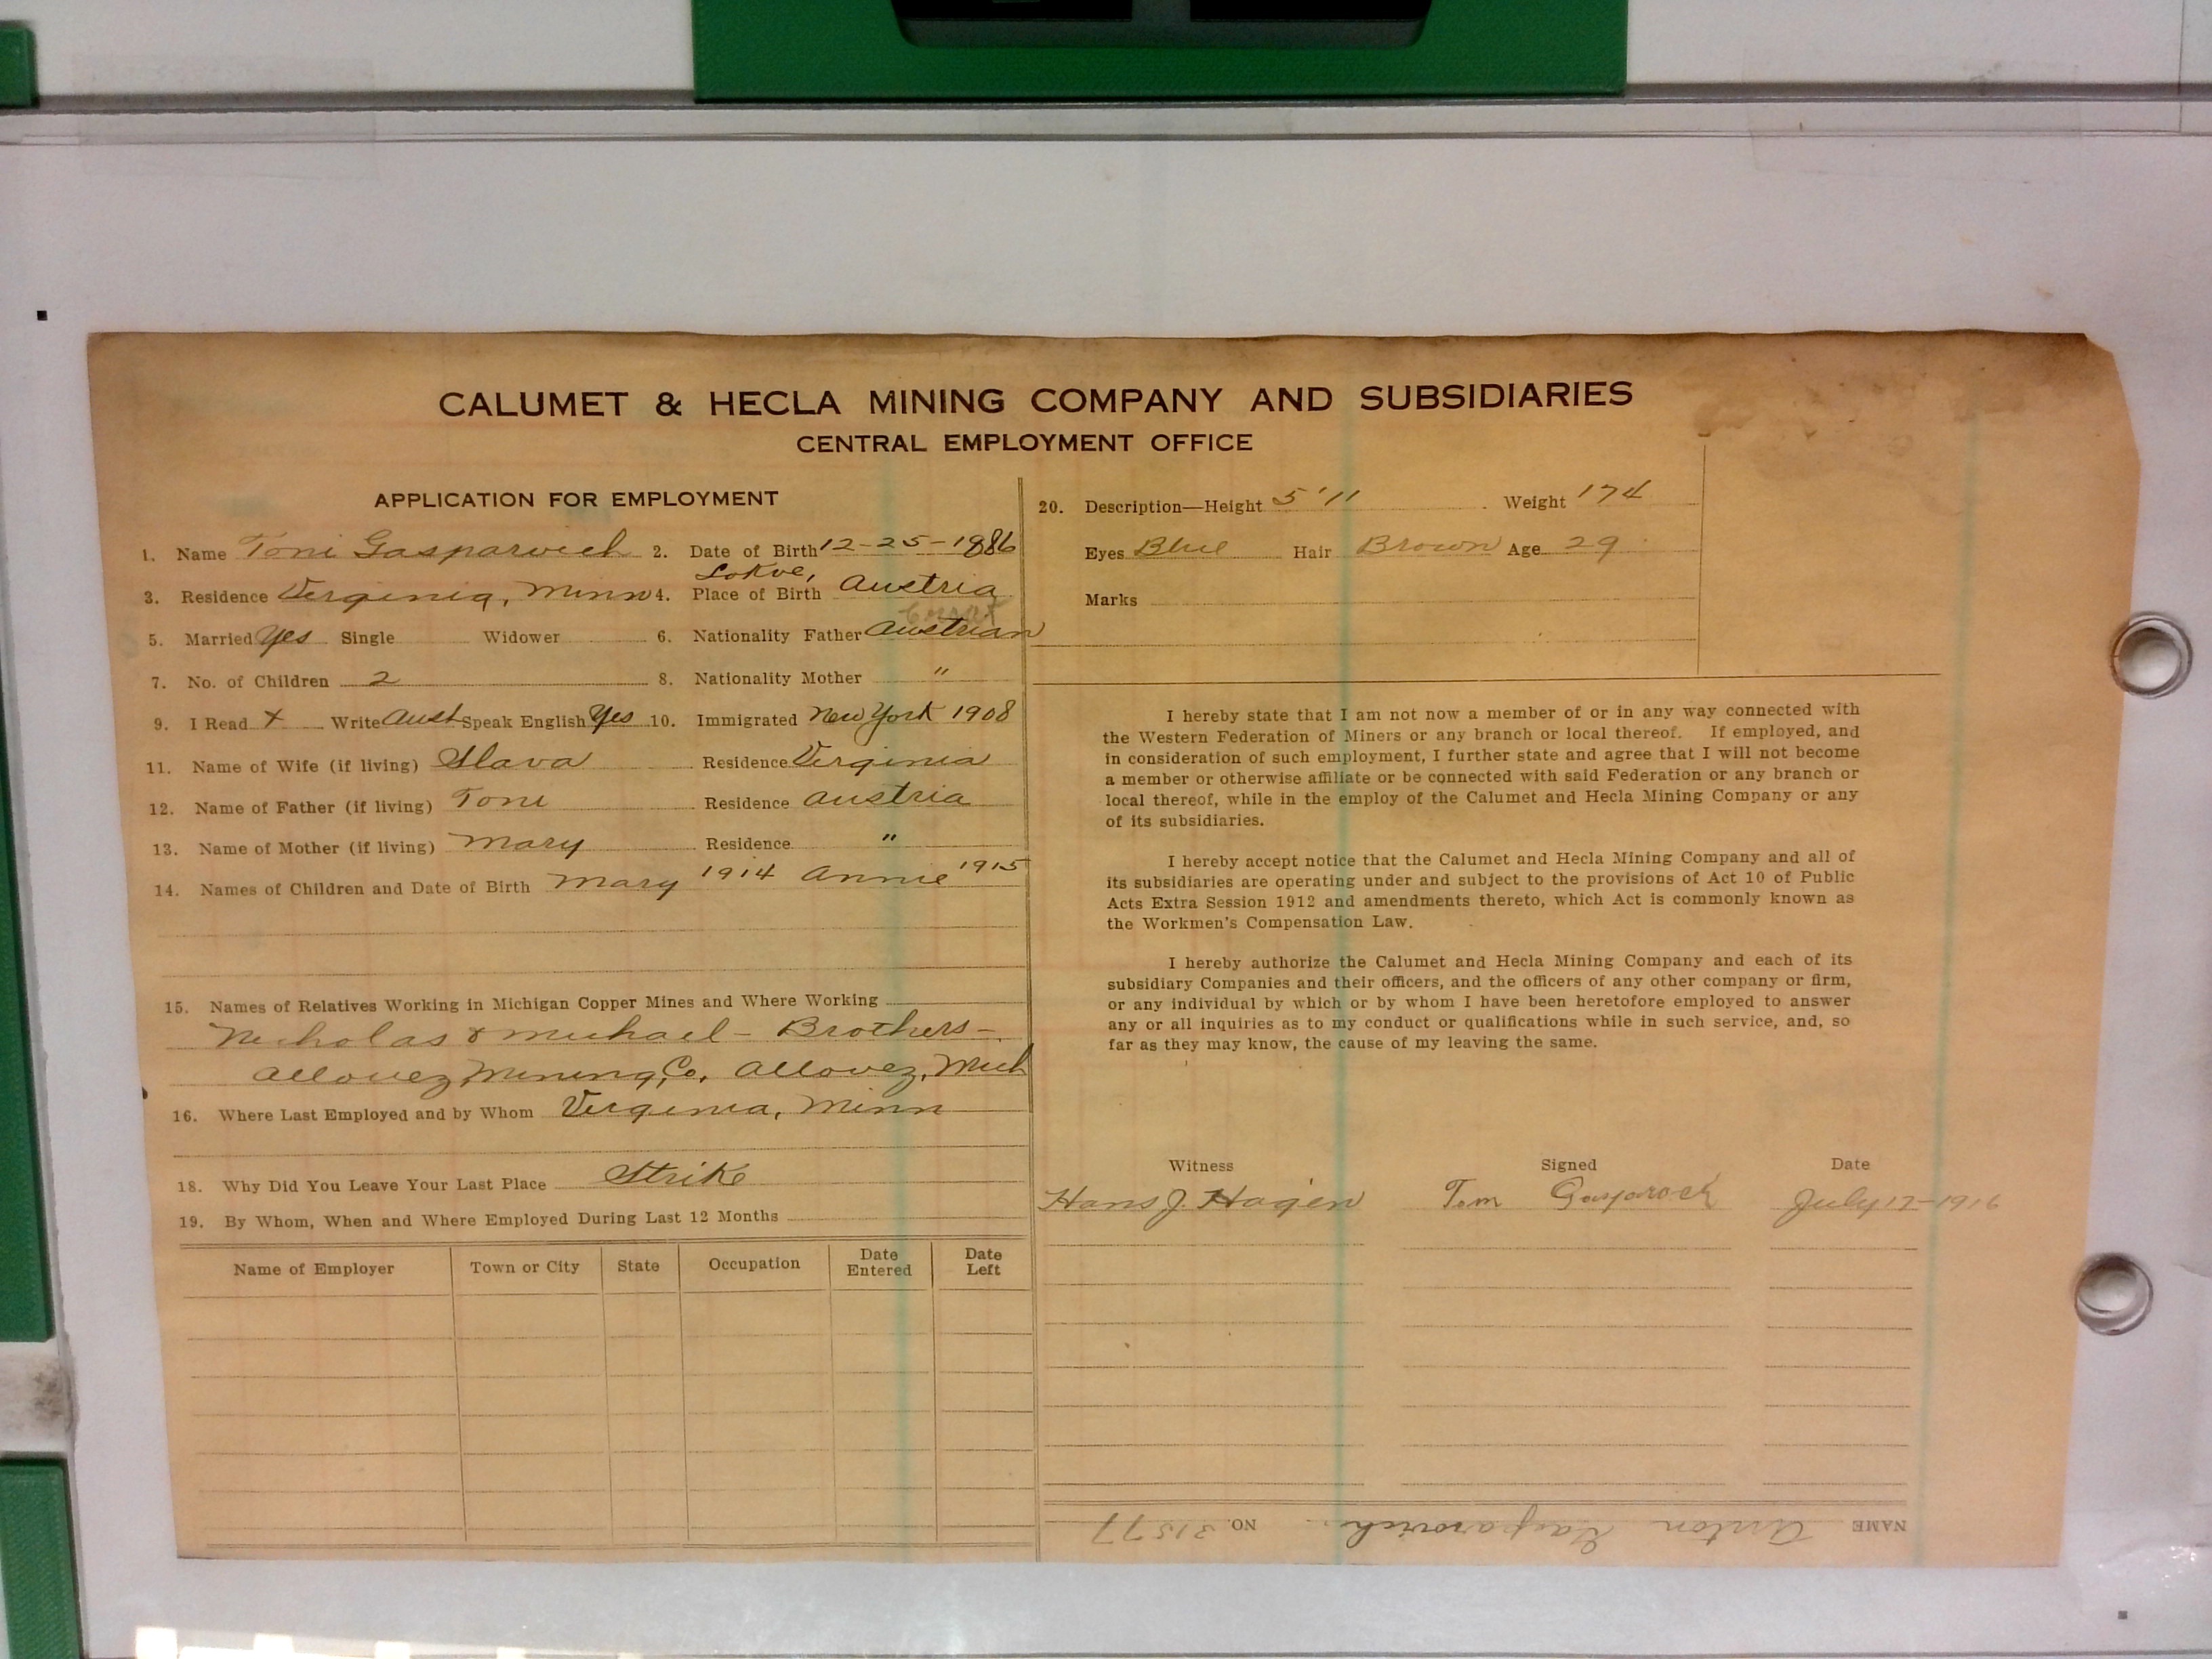 CALUMET & HECLA MINING COMPANY AND SUBSIDIARIES
CENTRAL EMPLOYMENT OFFICE
APPLICATION FOR EMPLOYMENT
1. Name Toni Gasparvich 2. Date of Birth 12-25-1886
Lokve,
3. Residence Verginia, Minn 4. Place of Birth Austria
Croat
5. Married Yes Single Widower 6. Nationality Father Austrian
7. No. of Children 2 8. Nationality Mother "
9. I Read X Write Aust Speak English Yes 10. Immigrated New York 1908
11. Name of Wife (if living) Slava Residence Verginia
12. Name of Father (if living) Toni Residence Austria
13. Name of Mother (if living) Mary Residence "
14. Names of Children and Date of Birth Mary 1914 Annie 1915
15. Names of Relatives Working in Michigan Copper Mines and Where Working
Nicholas & Michael - Brothers -
Allouez Mining Co, Allouez, Mich
16. Where Last Employed and by Whom Verginia, Minn
18. Why Did You Leave Your Last Place Strike
19. By Whom, When and Where Employed During Last 12 Months
Name of Employer Town or City State Occupation Date Entered Date Left
20. Description—Height 5'11 Weight 174
Eyes Blue Hair Brown Age 29
Marks
I hereby state that I am not now a member of or in any way connected with
the Western Federation of Miners or any branch or local thereof. If employed, and
in consideration of such employment, I further state and agree that I will not become
a member or otherwise affiliate or be connected with said Federation or any branch or
local thereof, while in the employ of the Calumet and Hecla Mining Company or any
of its subsidiaries.
I hereby accept notice that the Calumet and Hecla Mining Company and all of
its subsidiaries are operating under and subject to the provisions of Act 10 of Public
Acts Extra Session 1912 and amendments thereto, which Act is commonly known as
the Workmen's Compensation Law.
I hereby authorize the Calumet and Hecla Mining Company and each of its
subsidiary Companies and their officers, and the officers of any other company or firm,
or any individual by which or by whom I have been heretofore employed to answer
any or all inquiries as to my conduct or qualifications while in such service, and, so
far as they may know, the cause of my leaving the same.
Witness Signed Date
Hans J. Hagen Tom Gasparock July 17-1916
NAME Anton Gasparovich. NO. 31577